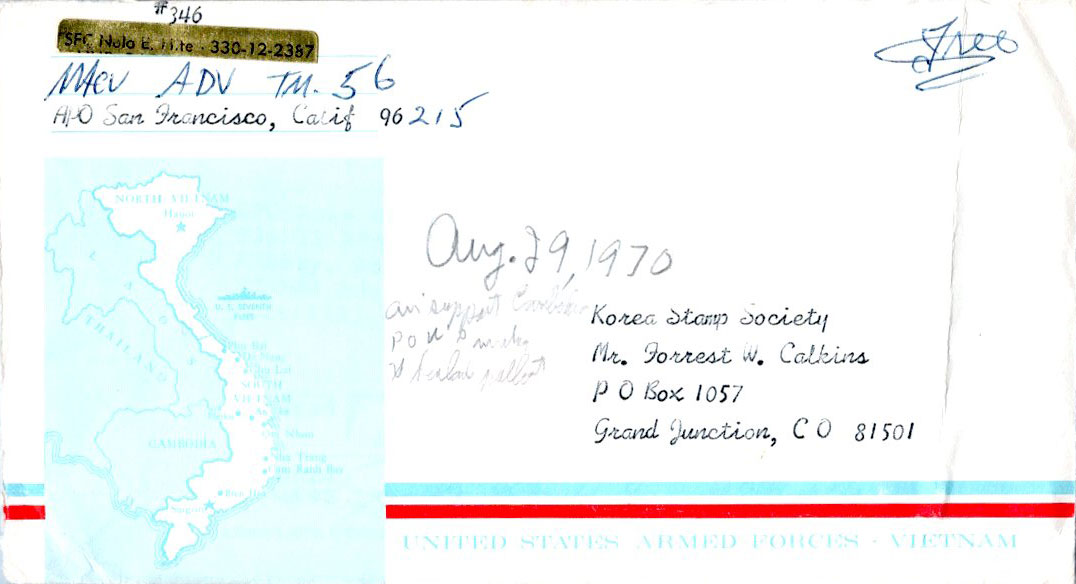 #346
SFC E. 330-12-2387
Free
MACV ADV TM. 56
APO San Francisco, Calif 96215
NORTH VIETNAM
Hanoi
U. S. SEVENTH
FLEET
THAILAND
Phu Bai
Da Nang
Chu Lai
SOUTH
VIETNAM
CAMBODIA
Nha Trang
Cam Ranh Bay
Bien Hoa
Saigon
Aug. 29, 1970
air support
POW's
Korea Stamp Society
Mr. Forrest W. Calkins
P O Box 1057
Grand Junction, CO 81501
UNITED STATES ARMED FORCES · VIETNAM